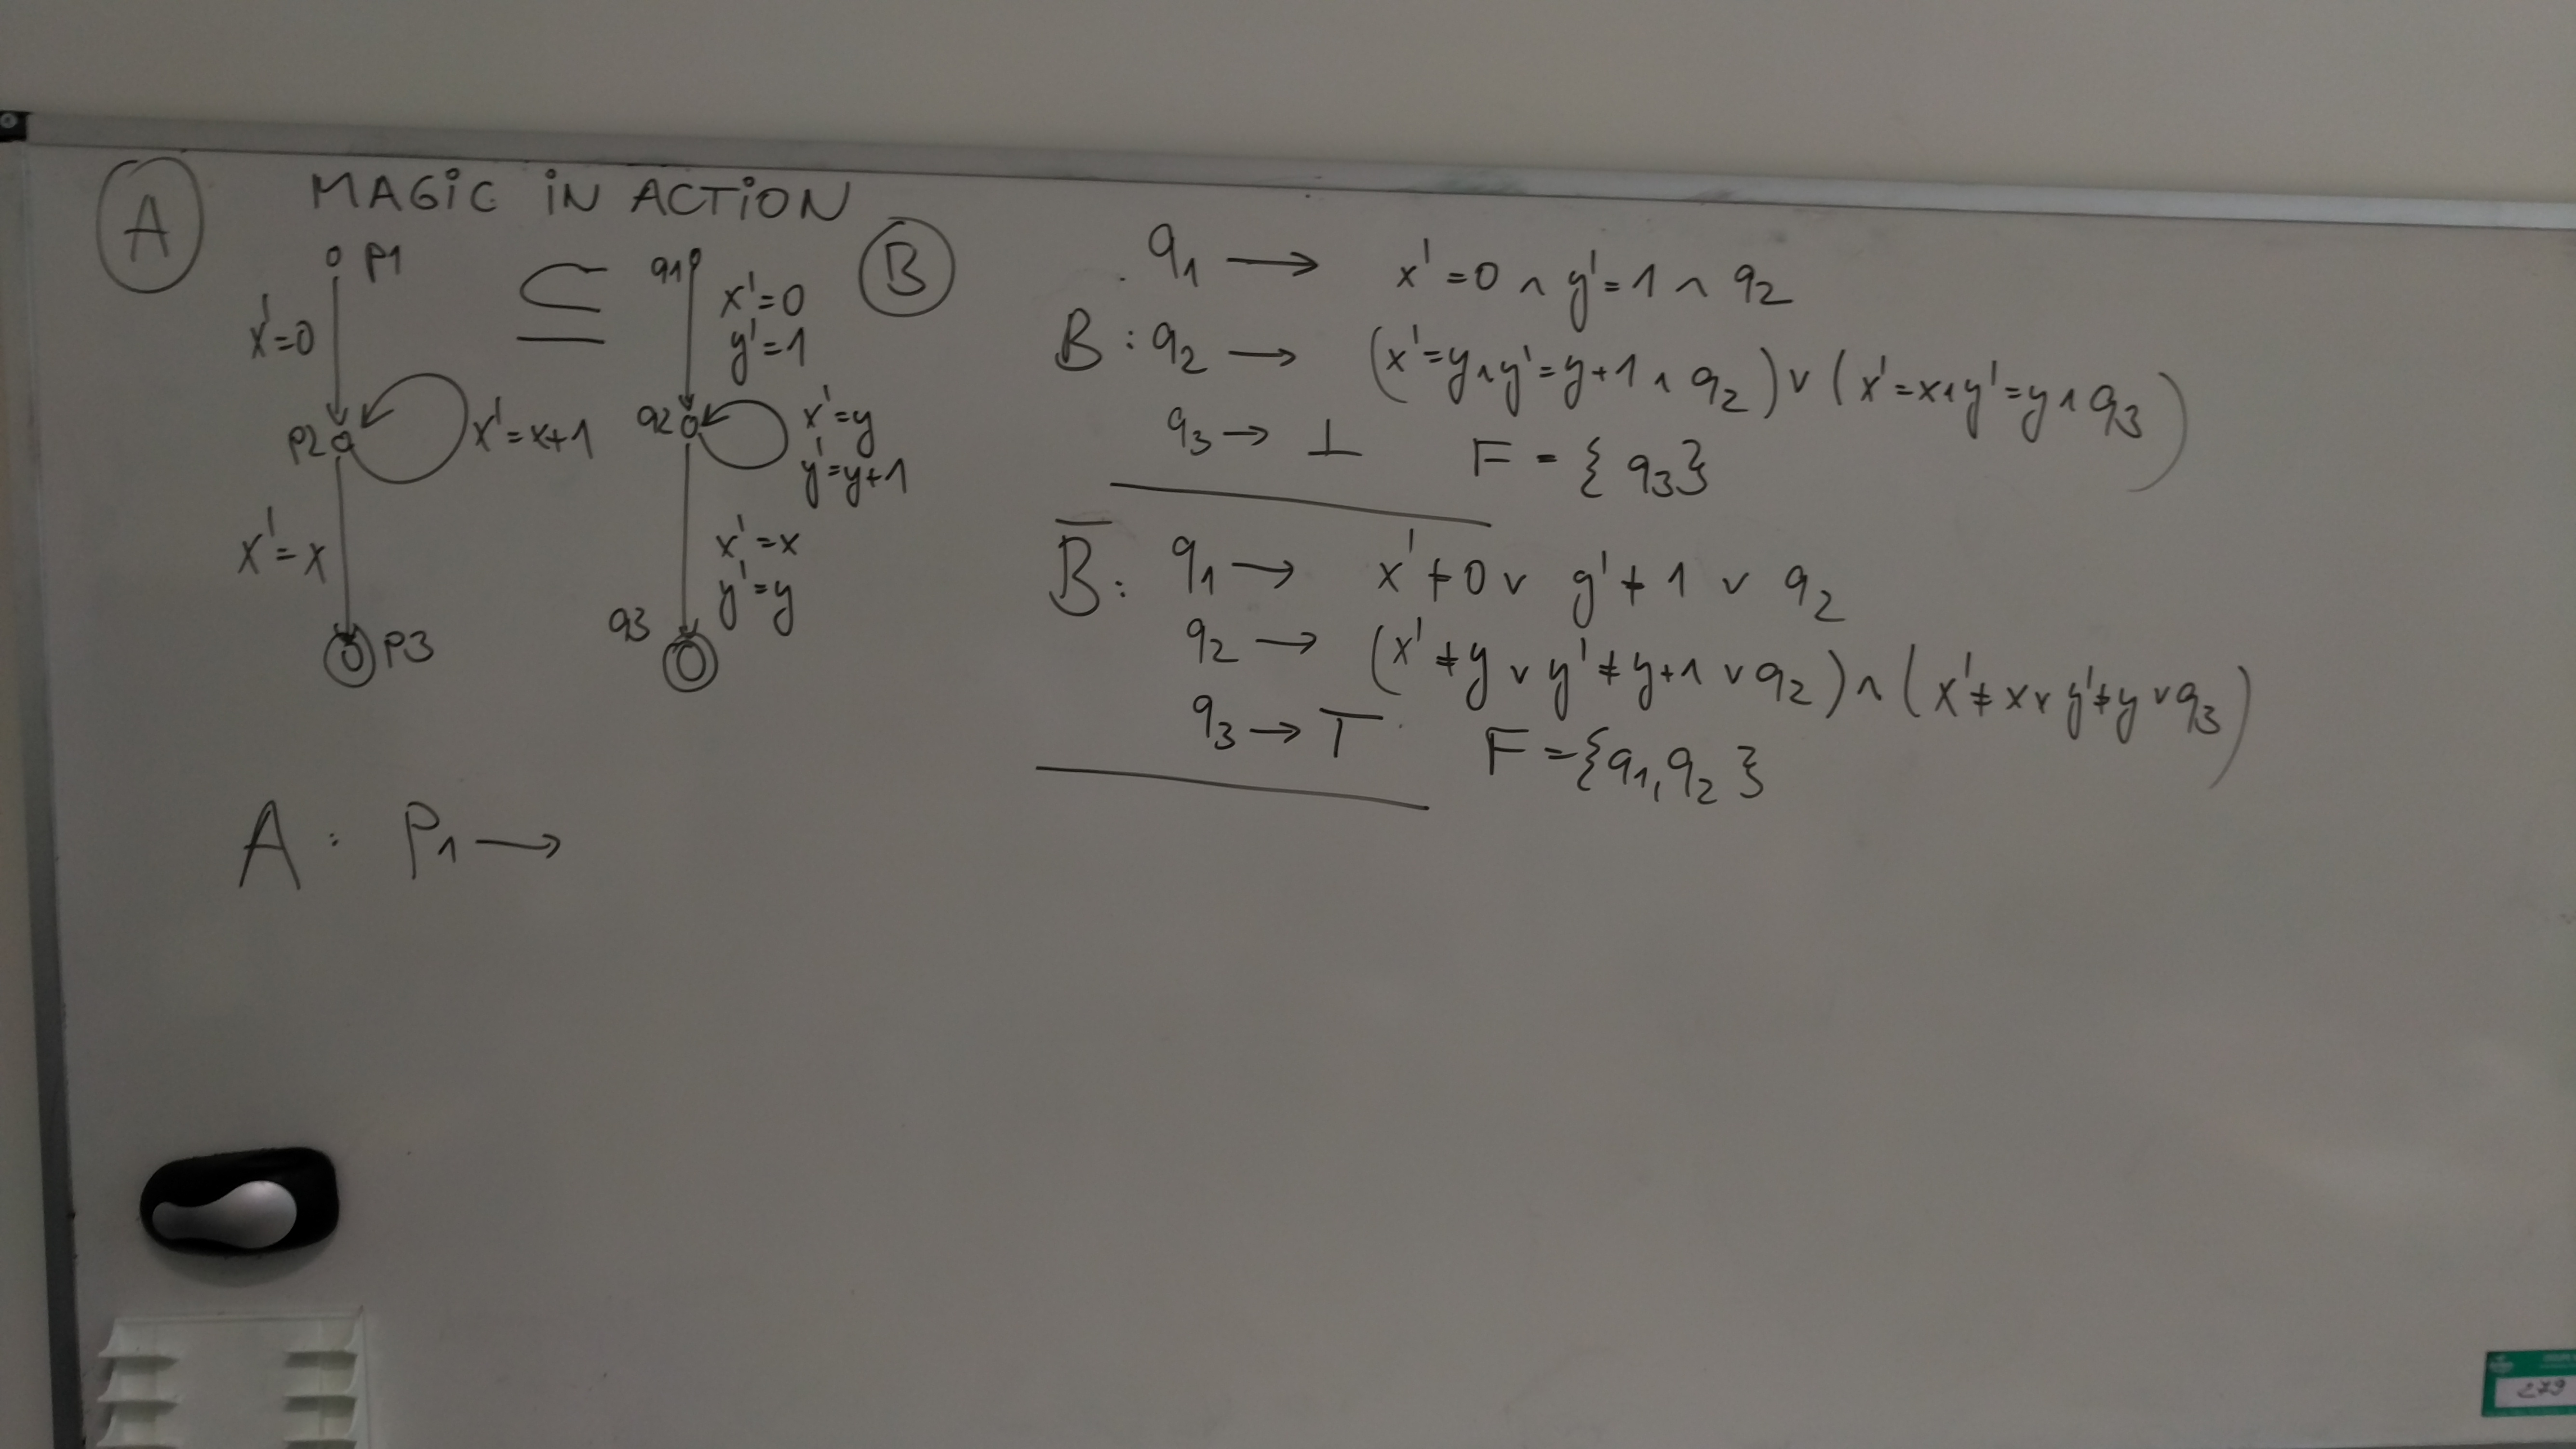 A MAGIC IN ACTION
p1 ⊆ q1 B
x'=0
x'=0
y'=1
p2 x'=x+1
q2 x'=y
y'=y+1
x'=x
x'=x
y'=y
p3
q3
q1 → x'=0 ∧ y'=1 ∧ q2
B: q2 → (x'=y ∧ y'=y+1 ∧ q2) ∨ (x'=x ∧ y'=y ∧ q3)
q3 → ⊥ F = { q3 }
B̅: q1 → x'≠0 ∨ y'≠1 ∨ q2
q2 → (x'≠y ∨ y'≠y+1 ∨ q2) ∧ (x'≠x ∨ y'≠y ∨ q3)
q3 → ⊤ F = { q1, q2 }
A: P1 →
279